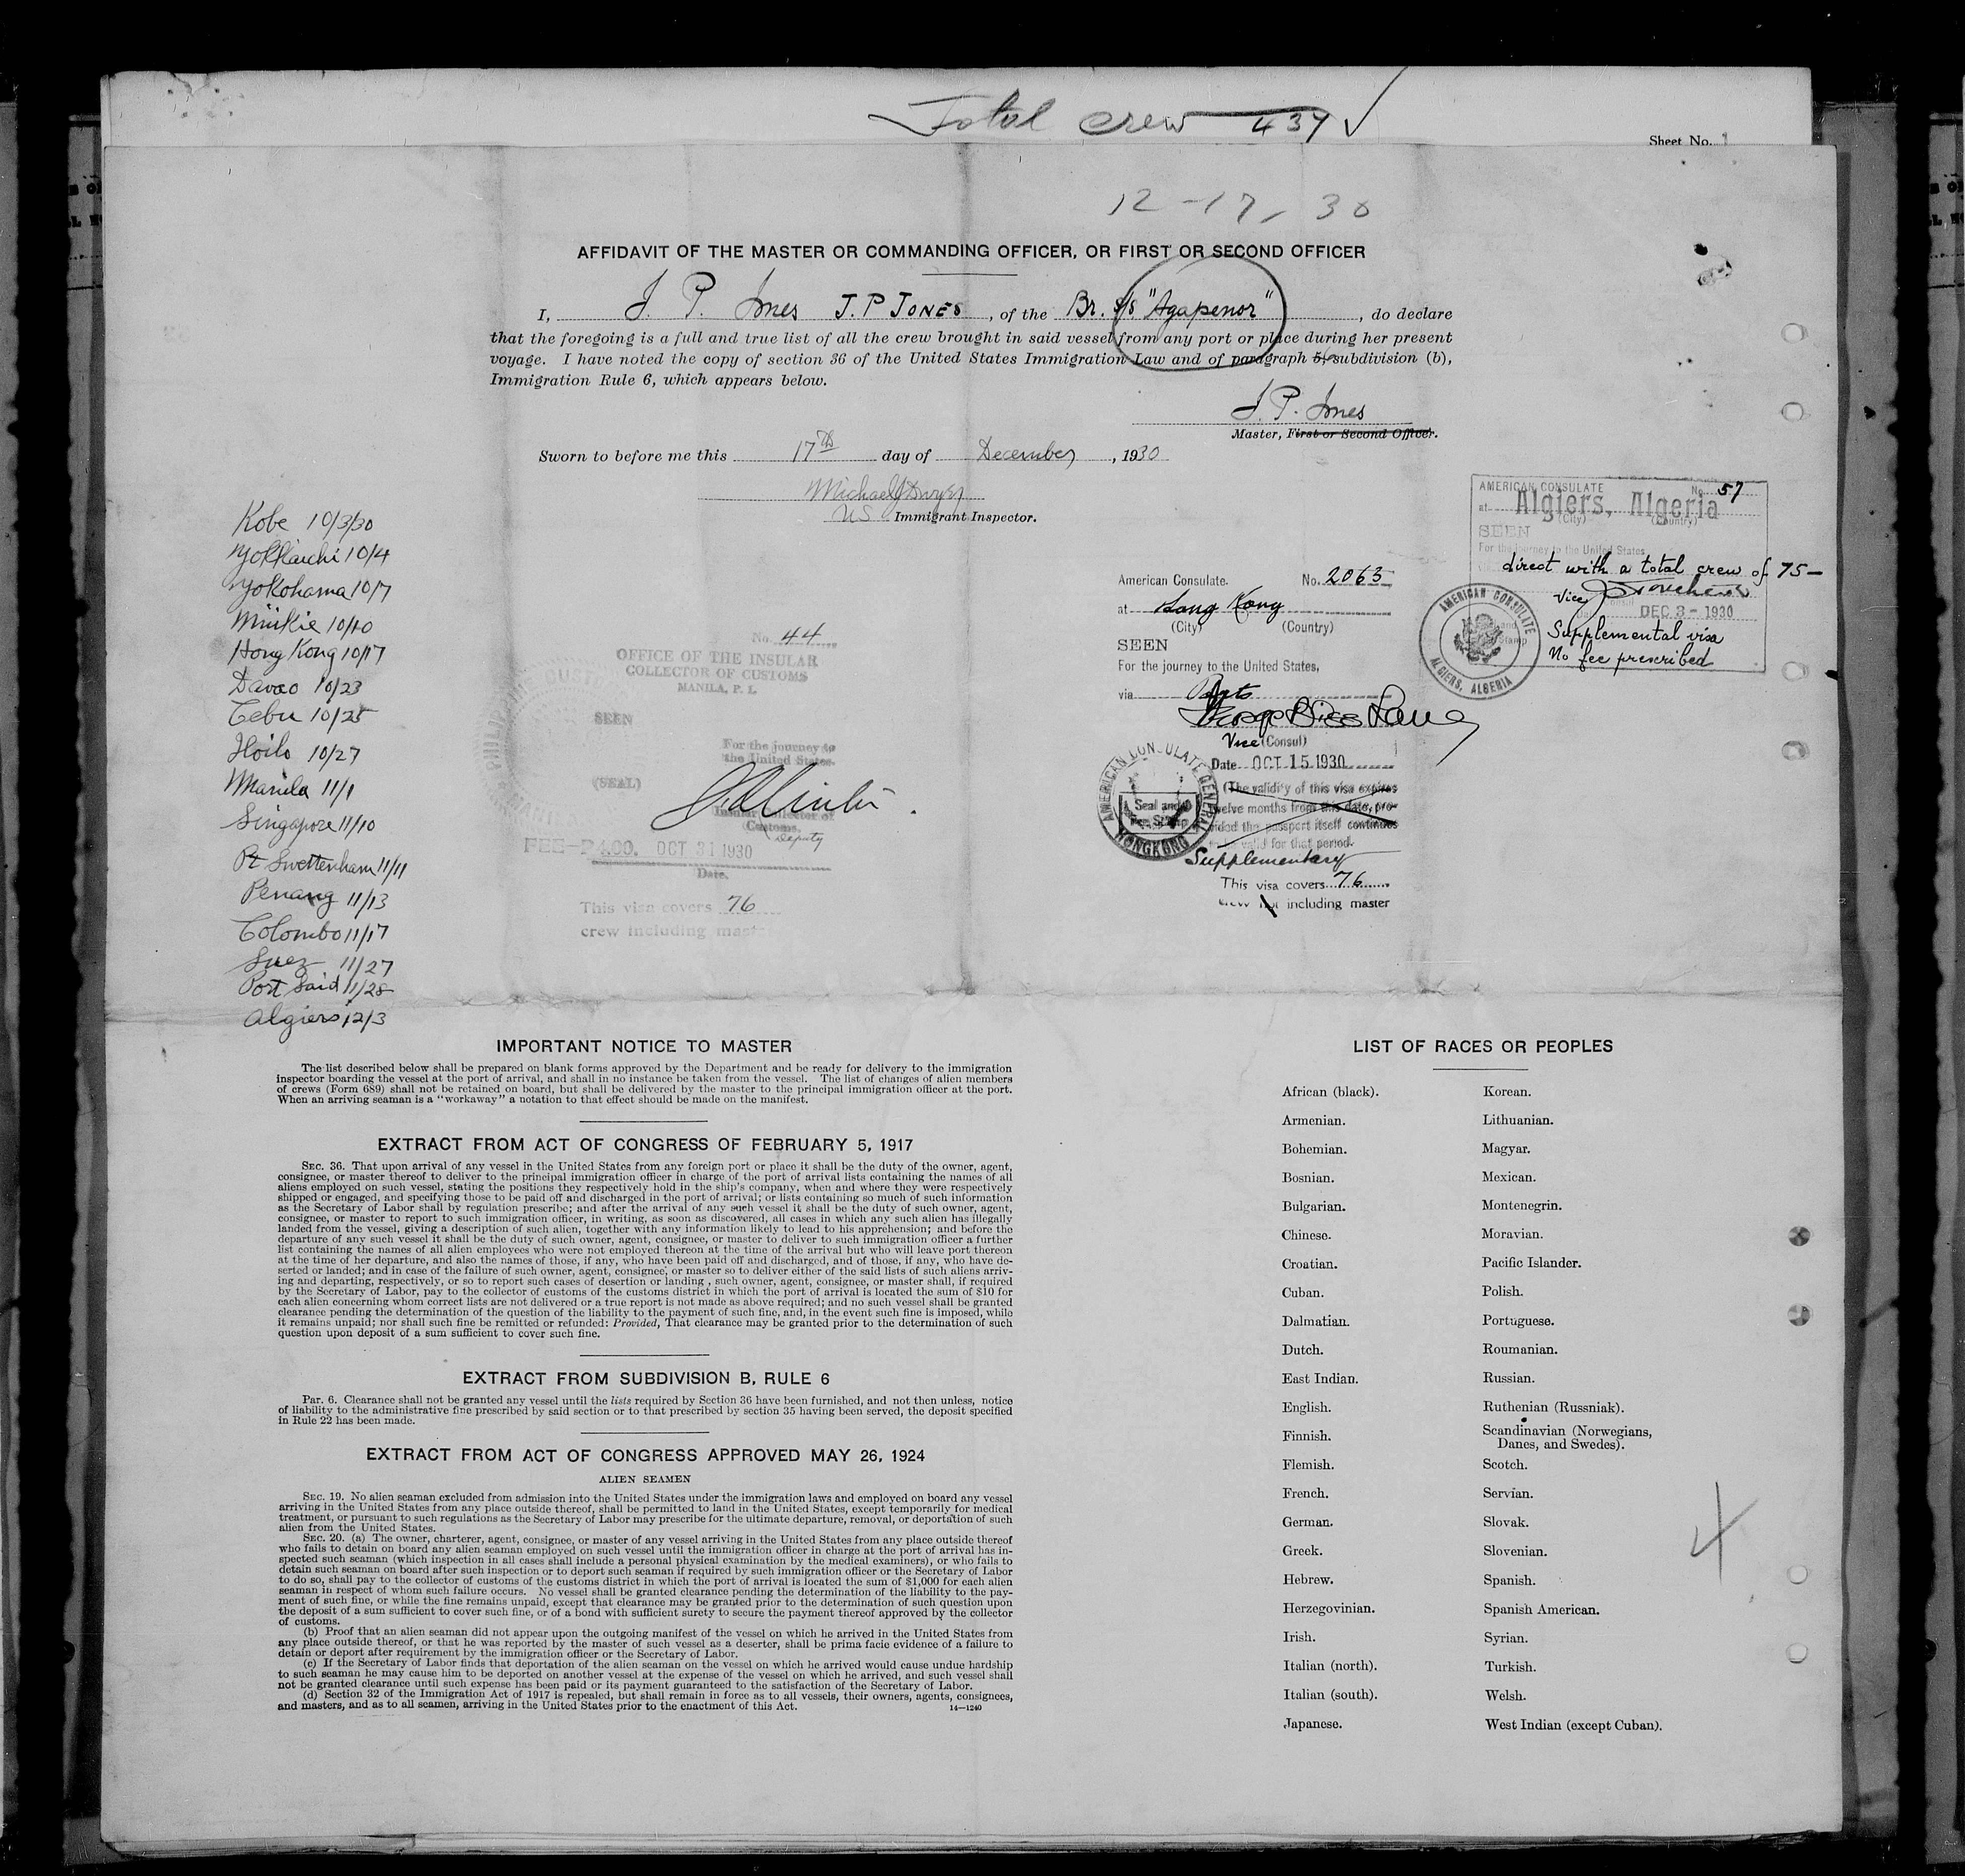 Total crew 437 ✓
Sheet No. 1
12-17-30
AFFIDAVIT OF THE MASTER OR COMMANDING OFFICER, OR FIRST OR SECOND OFFICER
I, J. P. Jones J. P JONES, of the Br. S/S "Agapenor", do declare
that the foregoing is a full and true list of all the crew brought in said vessel from any port or place during her present
voyage. I have noted the copy of section 36 of the United States Immigration Law and of paragraph 5, 6 subdivision (b),
Immigration Rule 6, which appears below.
J. P. Jones
Master, First or Second Officer.
Sworn to before me this 17th day of December, 1930
Michael J Dwyer
US Immigrant Inspector.
Kobe 10/3/30
Yokkaichi 10/4
Yokohama 10/7
Miike 10/10
Hong Kong 10/17
Davao 10/23
Cebu 10/25
Iloilo 10/27
Manila 11/1
Singapore 11/10
Pt Swettenham 11/11
Penang 11/13
Colombo 11/17
Suez 11/27
Port Said 11/28
Algiers 12/3
No. 44
OFFICE OF THE INSULAR
COLLECTOR OF CUSTOMS
MANILA, P. I.
SEEN
For the journey to
the United States.
(SEAL)
Insular Collector of
Customs.
Deputy
FEE-P4.00. OCT 31 1930
Date.
This visa covers 76
crew including master
American Consulate. No. 2063
at Hong Kong
(City) (Country)
SEEN
For the journey to the United States,
via Ports
George Bliss Lane
Vice (Consul)
Date OCT 15 1930
(The validity of this visa expires
twelve months from this date, pro-
vided the passport itself continues
to be valid for that period.
Supplementary
This visa covers 76
crew not including master
AMERICAN CONSULATE GENERAL
HONGKONG
Seal and
Fee Stamp
AMERICAN CONSULATE No. 57
at Algiers, Algeria
(City) (Country)
SEEN
For the journey to the United States
direct with a total crew of 75-
Vice Consul
DEC 3 - 1930
Supplemental visa
No fee prescribed
AMERICAN CONSULATE
ALGIERS, ALGERIA
IMPORTANT NOTICE TO MASTER
The list described below shall be prepared on blank forms approved by the Department and be ready for delivery to the immigration
inspector boarding the vessel at the port of arrival, and shall in no instance be taken from the vessel. The list of changes of alien members
of crews (Form 689) shall not be retained on board, but shall be delivered by the master to the principal immigration officer at the port.
When an arriving seaman is a "workaway" a notation to that effect should be made on the manifest.
EXTRACT FROM ACT OF CONGRESS OF FEBRUARY 5, 1917
SEC. 36. That upon arrival of any vessel in the United States from any foreign port or place it shall be the duty of the owner, agent,
consignee, or master thereof to deliver to the principal immigration officer in charge of the port of arrival lists containing the names of all
aliens employed on such vessel, stating the positions they respectively hold in the ship's company, when and where they were respectively
shipped or engaged, and specifying those to be paid off and discharged in the port of arrival; or lists containing so much of such information
as the Secretary of Labor shall by regulation prescribe; and after the arrival of any such vessel it shall be the duty of such owner, agent,
consignee, or master to report to such immigration officer, in writing, as soon as discovered, all cases in which any such alien has illegally
landed from the vessel, giving a description of such alien, together with any information likely to lead to his apprehension; and before the
departure of any such vessel it shall be the duty of such owner, agent, consignee, or master to deliver to such immigration officer a further
list containing the names of all alien employees who were not employed thereon at the time of the arrival but who will leave port thereon
at the time of her departure, and also the names of those, if any, who have been paid off and discharged, and of those, if any, who have de-
serted or landed; and in case of the failure of such owner, agent, consignee, or master so to deliver either of the said lists of such aliens arriv-
ing and departing, respectively, or so to report such cases of desertion or landing, such owner, agent, consignee, or master shall, if required
by the Secretary of Labor, pay to the collector of customs of the customs district in which the port of arrival is located the sum of $10 for
each alien concerning whom correct lists are not delivered or a true report is not made as above required; and no such vessel shall be granted
clearance pending the determination of the question of the liability to the payment of such fine, and, in the event such fine is imposed, while
it remains unpaid; nor shall such fine be remitted or refunded: Provided, That clearance may be granted prior to the determination of such
question upon deposit of a sum sufficient to cover such fine.
EXTRACT FROM SUBDIVISION B, RULE 6
Par. 6. Clearance shall not be granted any vessel until the lists required by Section 36 have been furnished, and not then unless, notice
of liability to the administrative fine prescribed by said section or to that prescribed by section 35 having been served, the deposit specified
in Rule 22 has been made.
EXTRACT FROM ACT OF CONGRESS APPROVED MAY 26, 1924
ALIEN SEAMEN
SEC. 19. No alien seaman excluded from admission into the United States under the immigration laws and employed on board any vessel
arriving in the United States from any place outside thereof, shall be permitted to land in the United States, except temporarily for medical
treatment, or pursuant to such regulations as the Secretary of Labor may prescribe for the ultimate departure, removal, or deportation of such
alien from the United States.
SEC. 20. (a) The owner, charterer, agent, consignee, or master of any vessel arriving in the United States from any place outside thereof
who fails to detain on board any alien seaman employed on such vessel until the immigration officer in charge at the port of arrival has in-
spected such seaman (which inspection in all cases shall include a personal physical examination by the medical examiners), or who fails to
detain such seaman on board after such inspection or to deport such seaman if required by such immigration officer or the Secretary of Labor
to do so, shall pay to the collector of customs of the customs district in which the port of arrival is located the sum of $1,000 for each alien
seaman in respect of whom such failure occurs. No vessel shall be granted clearance pending the determination of the liability to the pay-
ment of such fine, or while the fine remains unpaid, except that clearance may be granted prior to the determination of such question upon
the deposit of a sum sufficient to cover such fine, or of a bond with sufficient surety to secure the payment thereof approved by the collector
of customs.
(b) Proof that an alien seaman did not appear upon the outgoing manifest of the vessel on which he arrived in the United States from
any place outside thereof, or that he was reported by the master of such vessel as a deserter, shall be prima facie evidence of a failure to
detain or deport after requirement by the immigration officer or the Secretary of Labor.
(c) If the Secretary of Labor finds that deportation of the alien seaman on the vessel on which he arrived would cause undue hardship
to such seaman he may cause him to be deported on another vessel at the expense of the vessel on which he arrived, and such vessel shall
not be granted clearance until such expense has been paid or its payment guaranteed to the satisfaction of the Secretary of Labor.
(d) Section 32 of the Immigration Act of 1917 is repealed, but shall remain in force as to all vessels, their owners, agents, consignees,
and masters, and as to all seamen, arriving in the United States prior to the enactment of this Act.
14—1240
LIST OF RACES OR PEOPLES
African (black).
Armenian.
Bohemian.
Bosnian.
Bulgarian.
Chinese.
Croatian.
Cuban.
Dalmatian.
Dutch.
East Indian.
English.
Finnish.
Flemish.
French.
German.
Greek.
Hebrew.
Herzegovinian.
Irish.
Italian (north).
Italian (south).
Japanese.
Korean.
Lithuanian.
Magyar.
Mexican.
Montenegrin.
Moravian.
Pacific Islander.
Polish.
Portuguese.
Roumanian.
Russian.
Ruthenian (Russniak).
Scandinavian (Norwegians,
Danes, and Swedes).
Scotch.
Servian.
Slovak.
Slovenian.
Spanish.
Spanish American.
Syrian.
Turkish.
Welsh.
West Indian (except Cuban).
4